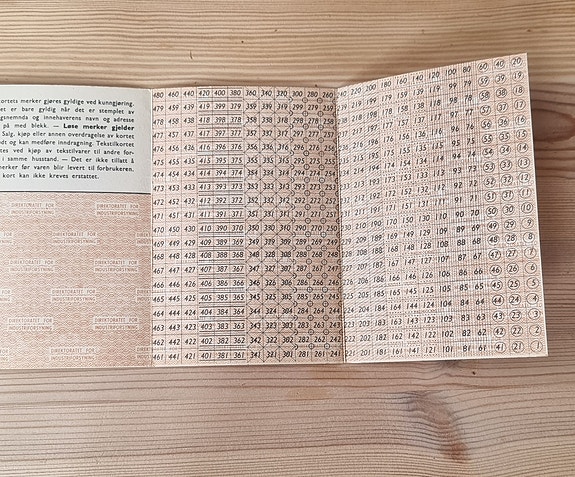 ortets merker gjøres gyldige ved kunngjøring.
et er bare gyldig når det er stemplet av
gsnemnda og innehaverens navn og adresse
på med blekk. — Løse merker gjelder
Salg, kjøp eller annen overdragelse av kortet
dt og kan medføre inndragning. Tekstilkortet
tes ved kjøp av tekstilvarer til andre for-
i samme husstand. — Det er ikke tillatt å
erker før varen blir levert til forbrukeren.
kort kan ikke kreves erstattet.
DIREKTORATET FOR
INDUSTRIFORSYNING
DIREKTORATET FOR
INDUSTRIFORSYNING
DIREKTORATET FOR
INDUSTRIFORSYNING
DIREKTORATET FOR
INDUSTRIFORSYNING
DIREKTORATET FOR
INDUSTRIFORSYNING
480 460 440 420 400 380 360 340 320 300 280 260
479 459 439 419 399 379 359 339 319 299 279 259
478 458 438 418 398 378 358 338 318 298 278 258
477 457 437 417 397 377 357 337 317 297 277 257
476 456 436 416 396 376 356 336 316 296 276 256
475 455 435 415 395 375 355 335 315 295 275 255
474 454 434 414 394 374 354 334 314 294 274 254
473 453 433 413 393 373 353 333 313 293 273 253
472 452 432 412 392 372 352 332 312 292 272 252
471 451 431 411 391 371 351 331 311 291 271 251
470 450 430 410 390 370 350 330 310 290 270 250
469 449 429 409 389 369 349 329 309 289 269 249
468 448 428 408 388 368 348 328 308 288 268 248
467 447 427 407 387 367 347 327 307 287 267 247
466 446 426 406 386 366 346 326 306 286 266 246
465 445 425 405 385 365 345 325 305 285 265 245
464 444 424 404 384 364 344 324 304 284 264 244
463 443 423 403 383 363 343 323 303 283 263 243
462 442 422 402 382 362 342 322 302 282 262 242
461 441 421 401 381 361 341 321 301 281 261 241
220 200 180 160 140 120 100 80 60 40 20
219 199 179 159 139 119 99 79 59 39 19
218 198 178 158 138 118 98 78 58 38 18
217 197 177 157 137 117 97 77 57 37 17
216 196 176 156 136 116 96 76 56 36 16
215 195 175 155 135 115 95 75 55 35 15
214 194 174 154 134 114 94 74 54 34 14
213 193 173 153 133 113 93 73 53 33 13
212 192 172 152 132 112 92 72 52 32 12
211 191 171 151 131 111 91 71 51 31 11
210 190 170 150 130 110 90 70 50 30 10
209 189 169 149 129 109 89 69 49 29 9
208 188 168 148 128 108 88 68 48 28 8
207 187 167 147 127 107 87 67 47 27 7
206 186 166 146 126 106 86 66 46 26 6
205 185 165 145 125 105 85 65 45 25 5
204 184 164 144 124 104 84 64 44 24 4
203 183 163 143 123 103 83 63 43 23 3
222 202 182 162 142 122 102 82 62 42 22 2
221 201 181 161 141 121 101 81 61 41 21 1